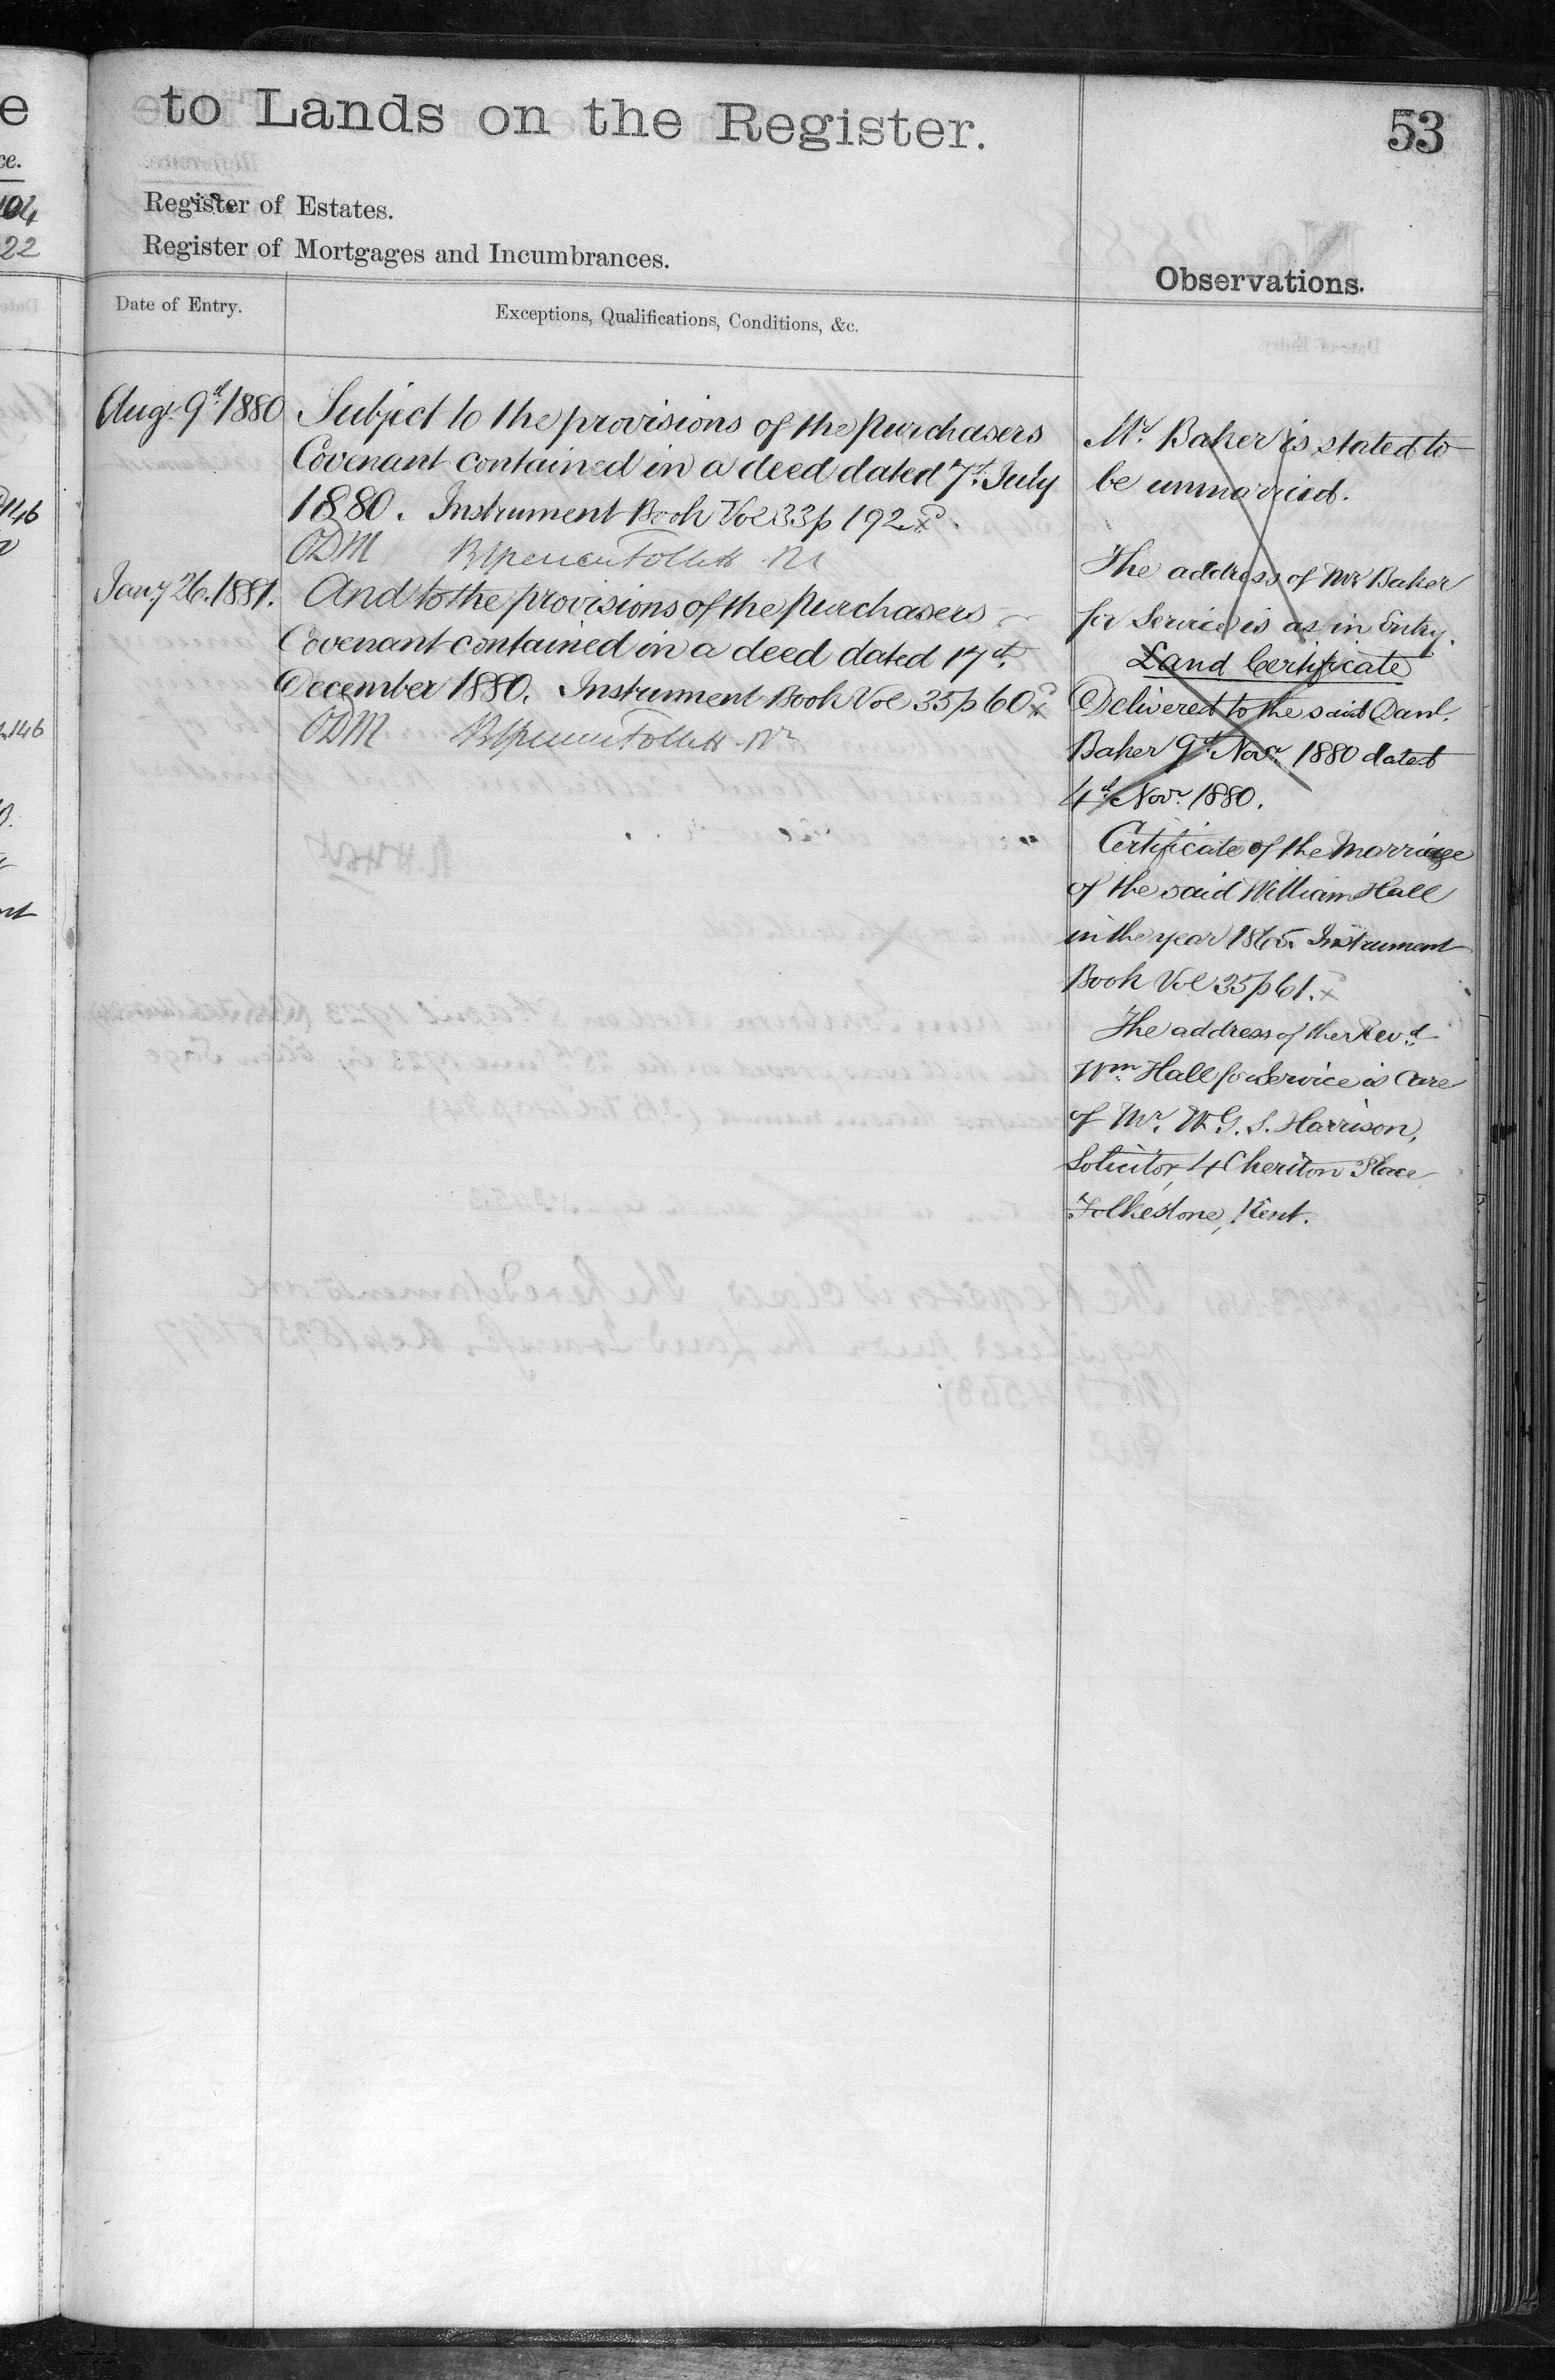 to Lands on the Register.
53
Register of Estates.
Register of Mortgages and Incumbrances.
Observations.
Date of Entry.
Exceptions, Qualifications, Conditions, &c.
Augt. 9th 1880
Subject to the provisions of the purchasers
Covenant contained in a deed dated 7th July
1880. Instrument Book Vol 33 p 192.
ODM
Jany 26. 1881.
And to the provisions of the purchasers
Covenant contained in a deed dated 17th
December 1880. Instrument Book Vol 35 p 60
ODM
Mr. Baker is stated to
be unmarried.
The address of Mr Baker
for Service is as in Entry.
Land Certificate
Delivered to the said Danl.
Baker 9th Novr. 1880 dated
4th Novr. 1880.
Certificate of the Marriage
of the said William Hall
in the year 1865. Instrument
Book Vol 35 p 61.
The address of the Revd.
Wm. Hall for Service is Care
of Mr. W. G. S. Harrison,
Solicitor, 4 Cheriton Place
Folkestone, Kent.
e
ce.
104
22
146
146